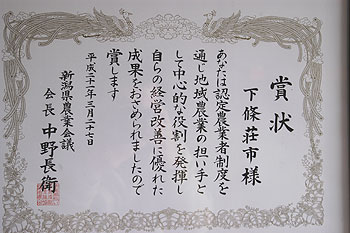 賞状
下條荘市様
あなたは認定農業者制度を
通じ地域農業の担い手と
して中心的な役割を発揮し
自らの経営改善に優れた
成果をおさめられましたので
賞します
平成二十一年三月二十七日
新潟県農業会議
会長 中野長衛